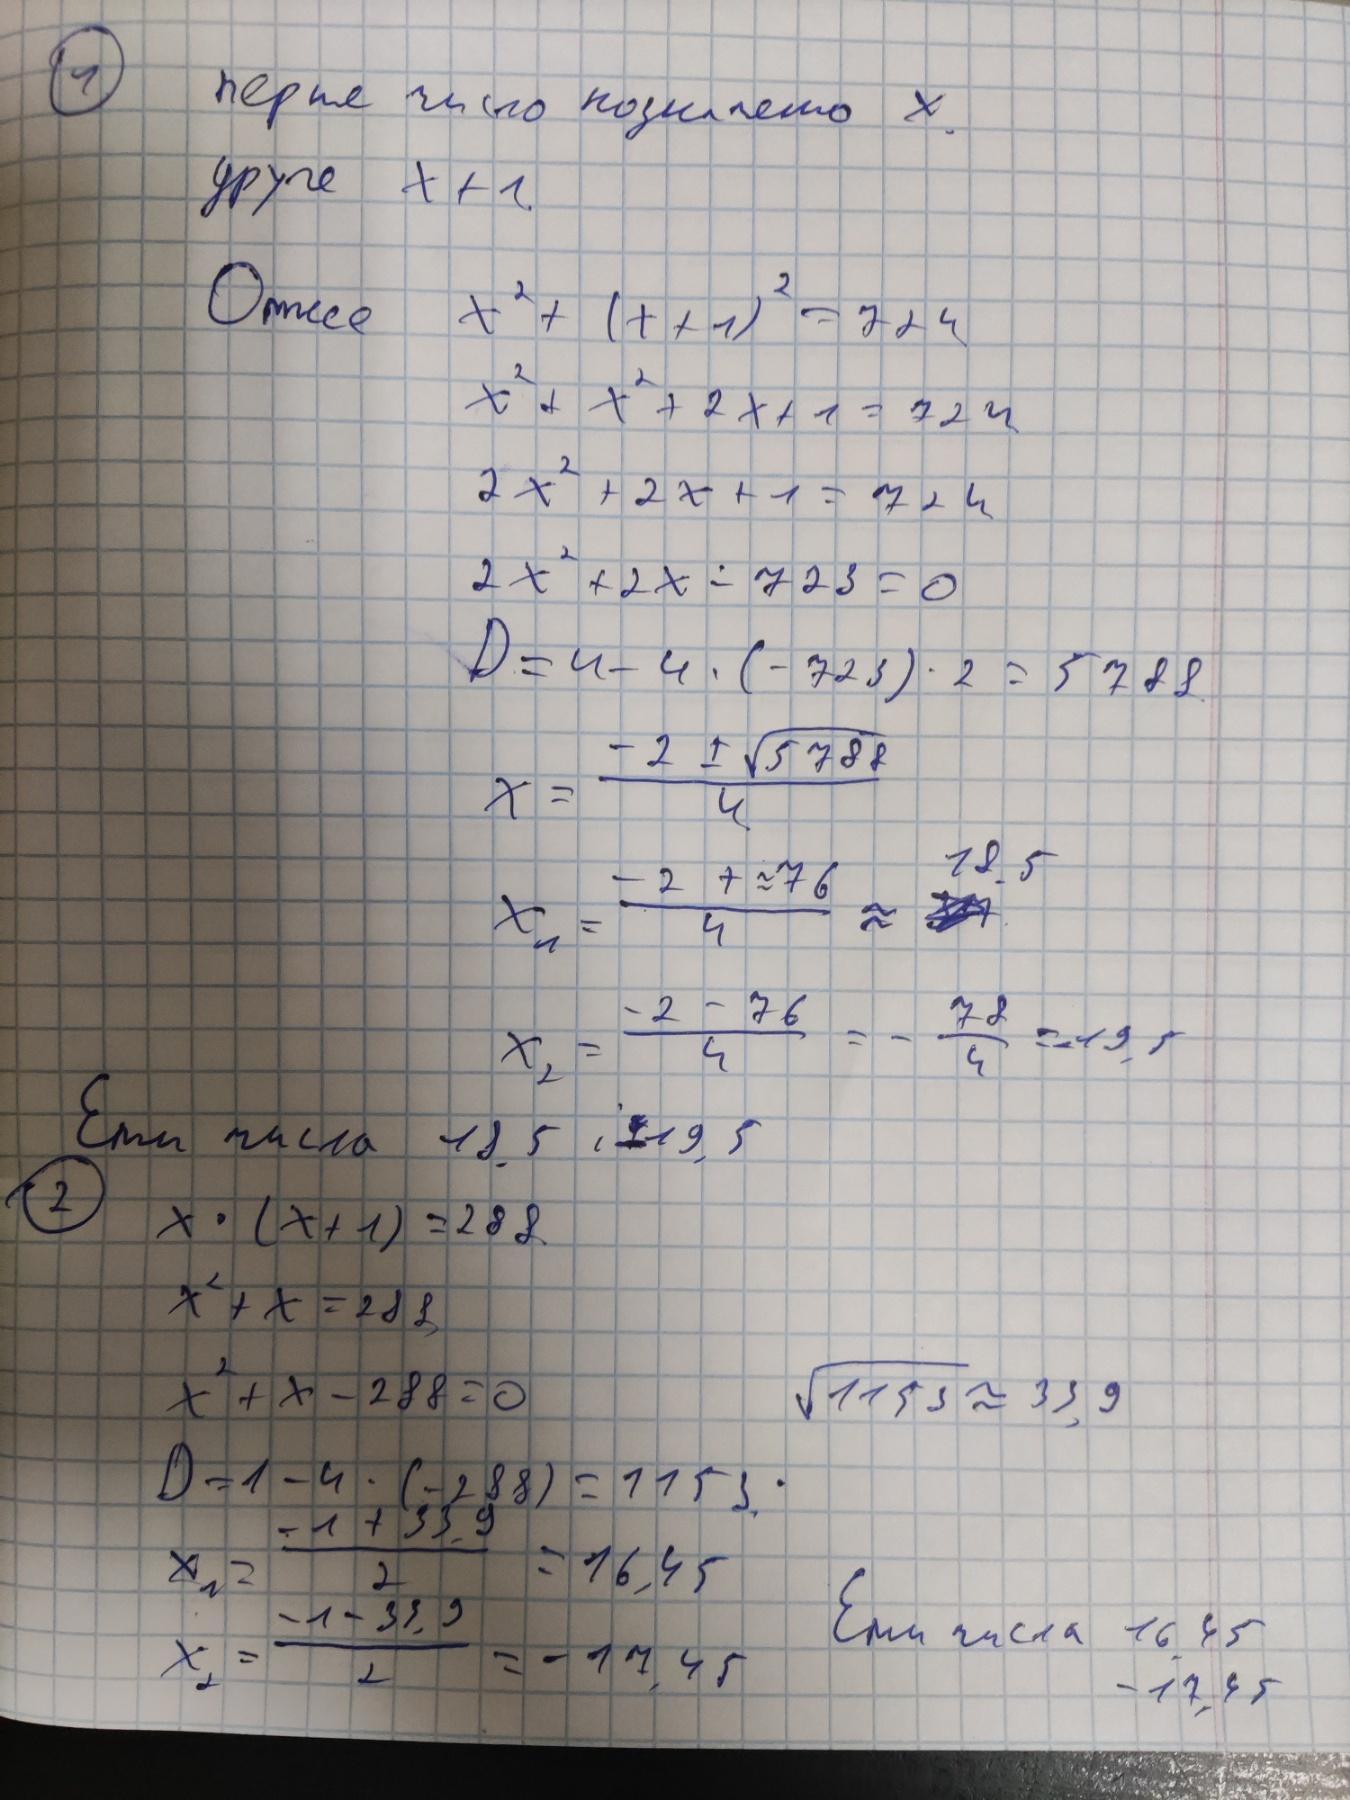 1
перше число позначемо x.
друге x+1.
Отже x² + (x+1)² = 724
x² + x² + 2x + 1 = 724
2x² + 2x + 1 = 724
2x² + 2x - 723 = 0
D = 4 - 4 · (-723) · 2 = 5788
x = (-2 ± √5788) / 4
x₁ = (-2 + ≈76) / 4 ≈ 18.5
x₂ = (-2 - 76) / 4 = - 78/4 = -19,5
Ети числа 18.5 і -19,5
2
x · (x+1) = 288
x² + x = 288
x² + x - 288 = 0
√1153 ≈ 33,9
D = 1 - 4 · (-288) = 1153.
x₁ = (-1 + 33,9) / 2 = 16,45
x₂ = (-1 - 33,9) / 2 = -17,45
Ети числа 16,45
-17,45